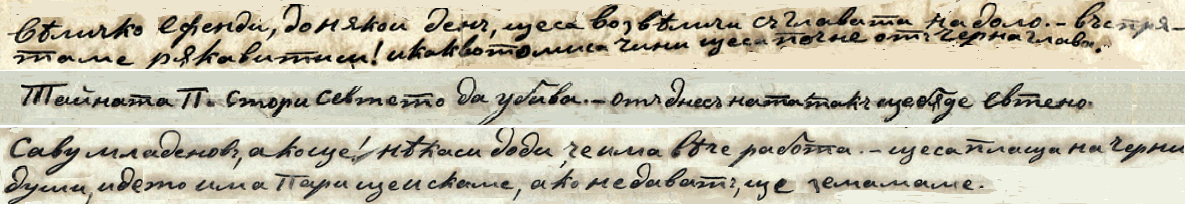 вѣличко ефенди, до някои денъ, щеса возвѣличи съглавата надоло. – въспря-
таме рѫкавитиси! икаквотомиса чини щеса почне отъ чернаглава.
Тайната П. стори севтето да убива. – отъ днесъ нататакъ щебѫде евтено.
Саву младеновъ, ако ще! нѣкаси доди, че има вѣче работа. – щеса плаща на черни
души, идето има Пари щеискаме, ако недаватъ, ще земамаме.